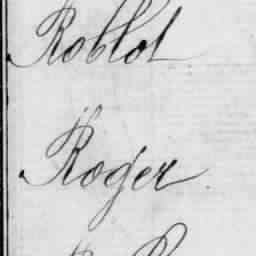 Roblot
Roger